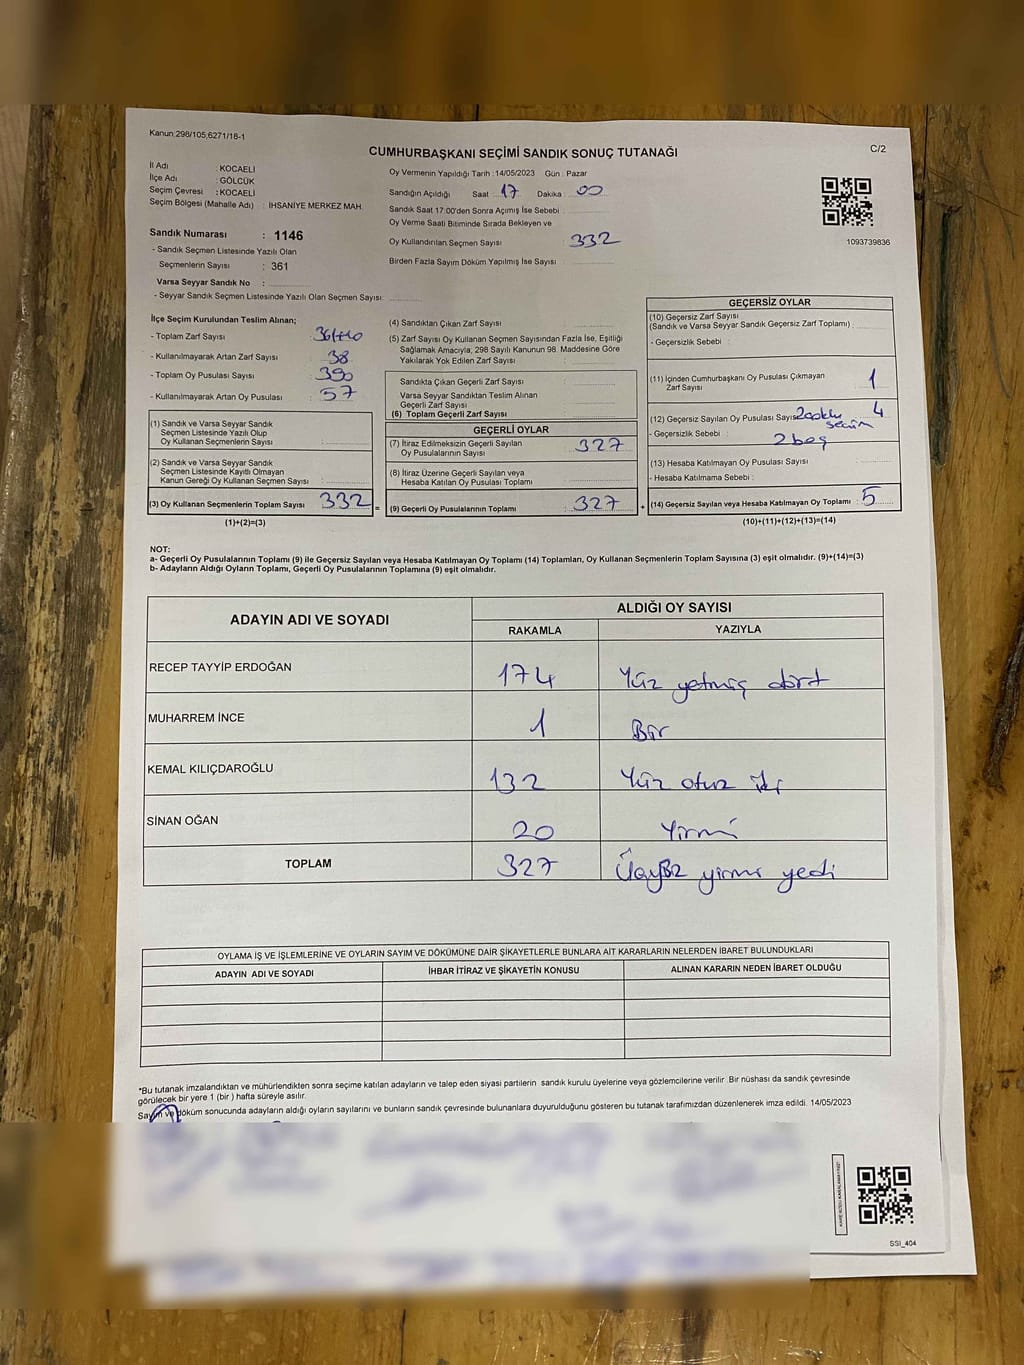 Kanun:298/105;6271/16-1
C/2
CUMHURBAŞKANI SEÇİMİ SANDIK SONUÇ TUTANAĞI
İl Adı : KOCAELİ
İlçe Adı : GÖLCÜK
Seçim Çevresi : KOCAELİ
Seçim Bölgesi (Mahalle Adı) : IHSANİYE MERKEZ MAH.
Sandık Numarası : 1146
- Sandık Seçmen Listesinde Yazılı Olan
Seçmenlerin Sayısı : 361
Varsa Seyyar Sandık No :
- Seyyar Sandık Seçmen Listesinde Yazılı Olan Seçmen Sayısı:
Oy Vermenin Yapıldığı Tarih :14/05/2023 Gün : Pazar
Sandığın Açıldığı Saat : 17 Dakika : 00
Sandık Saat 17:00'den Sonra Açımış İse Sebebi :
Oy Verme Saati Bitiminde Sırada Bekleyen ve
Oy Kullandırılan Seçmen Sayısı : 332
Birden Fazla Sayım Döküm Yapılmış İse Sayısı :
1093739836
İlçe Seçim Kurulundan Teslim Alınan;
- Toplam Zarf Sayısı :
- Kullanılmayarak Artan Zarf Sayısı : 38
- Toplam Oy Pusulası Sayısı : 390
- Kullanılmayarak Artan Oy Pusulası : 57
(1) Sandık ve Varsa Seyyar Sandık
Seçmen Listesinde Yazılı Olup
Oy Kullanan Seçmenlerin Sayısı :
(2) Sandık ve Varsa Seyyar Sandık
Seçmen Listesinde Kayıtlı Olmayan
Kanun Gereği Oy Kullanan Seçmen Sayısı :
(3) Oy Kullanan Seçmenlerin Toplam Sayısı : 332
(1)+(2)=(3)
(4) Sandıktan Çıkan Zarf Sayısı :
(5) Zarf Sayısı Oy Kullanan Seçmen Sayısından Fazla İse, Eşitliği
Sağlamak Amacıyla; 298 Sayılı Kanunun 98. Maddesine Göre
Yakılarak Yok Edilen Zarf Sayısı :
Sandıkta Çıkan Geçerli Zarf Sayısı :
Varsa Seyyar Sandıktan Teslim Alınan
Geçerli Zarf Sayısı :
(6) Toplam Geçerli Zarf Sayısı :
GEÇERLİ OYLAR
(7) İtiraz Edilmeksizin Geçerli Sayılan
Oy Pusulalarının Sayısı : 327
(8) İtiraz Üzerine Geçerli Sayılan veya
Hesaba Katılan Oy Pusulası Toplamı :
= (9) Geçerli Oy Pusulalarının Toplamı : 327
GEÇERSİZ OYLAR
(10) Geçersiz Zarf Sayısı
(Sandık ve Varsa Seyyar Sandık Geçersiz Zarf Toplamı) :
- Geçersizlik Sebebi :
(11) İçinden Cumhurbaşkanı Oy Pusulası Çıkmayan
Zarf Sayısı : 1
(12) Geçersiz Sayılan Oy Pusulası Sayısı 4
- Geçersizlik Sebebi : seçim
2 boş
(13) Hesaba Katılmayan Oy Pusulası Sayısı :
- Hesaba Katılmama Sebebi :
+ (14) Geçersiz Sayılan veya Hesaba Katılmayan Oy Toplamı : 5
(10)+(11)+(12)+(13)=(14)
NOT:
a- Geçerli Oy Pusulalarının Toplamı (9) ile Geçersiz Sayılan veya Hesaba Katılmayan Oy Toplamı (14) Toplamları, Oy Kullanan Seçmenlerin Toplam Sayısına (3) eşit olmalıdır. (9)+(14)=(3)
b- Adayların Aldığı Oyların Toplamı, Geçerli Oy Pusulalarının Toplamına (9) eşit olmalıdır.
ADAYIN ADI VE SOYADI ALDIĞI OY SAYISI
RAKAMLA YAZIYLA
RECEP TAYYİP ERDOĞAN 174 Yüz yetmiş dört
MUHARREM İNCE 1 Bir
KEMAL KILIÇDAROĞLU 132 Yüz otuz iki
SİNAN OĞAN 20 Yirmi
TOPLAM 327 Üçyüz yirmi yedi
OYLAMA İŞ VE İŞLEMLERİNE VE OYLARIN SAYIM VE DÖKÜMÜNE DAİR ŞİKAYETLERLE BUNLARA AİT KARARLARIN NELERDEN İBARET BULUNDUKLARI
ADAYIN ADI VE SOYADI İHBAR İTİRAZ VE ŞİKAYETİN KONUSU ALINAN KARARIN NEDEN İBARET OLDUĞU
*Bu tutanak imzalandıktan ve mühürlendikten sonra seçime katılan adayların ve talep eden siyasi partilerin sandık kurulu üyelerine veya gözlemcilerine verilir .Bir nüshası da sandık çevresinde
görülecek bir yere 1 (bir ) hafta süreyle asılır.
Sayım ve döküm sonucunda adayların aldığı oyların sayılarını ve bunların sandık çevresinde bulunanlara duyurulduğunu gösteren bu tutanak tarafımızdan düzenlenerek imza edildi. 14/05/2023
SSI_404